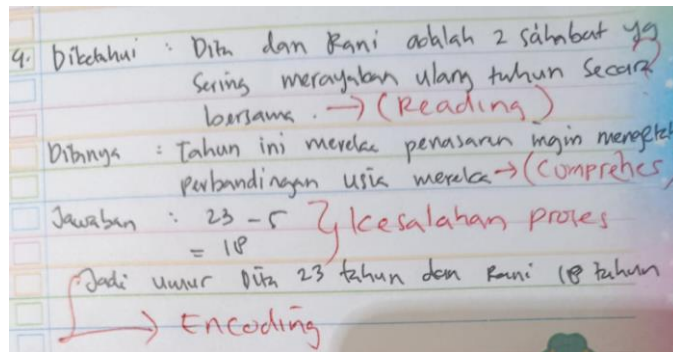 4. Diketahui : Dita dan Rani adalah 2 sahabat yg
Sering merayakan ulang tahun Secara
bersama. → (Reading)
Ditanya : Tahun ini mereka penasaran ingin menget
perbandingan usia mereka → (Comprehes
Jawaban : 23 - 5 } kesalahan proses
= 18
Jadi umur Dita 23 tahun dan Rani 18 tahun
→ Encoding